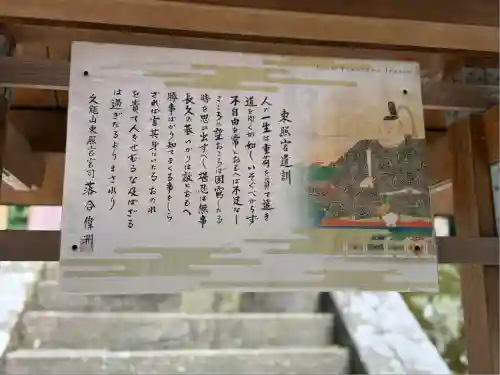 東照宮遺訓
人の一生は重荷を負て遠き
道をゆくが如しいそぐべからず
不自由を常とおもへば不足なし
こころに望おこらば困窮したる
時を思ひ出すべし堪忍は無事
長久の基いかりは敵とおもへ
勝事ばかり知てまくる事をしら
ざれば害其身にいたるおのれ
を責て人をせむるな及ばざる
は過ぎたるよりまされり
久能山東照宮宮司 落合偉洲